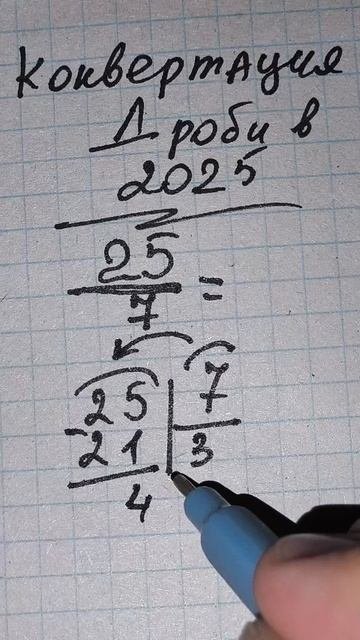 Конвертация
Дроби в
2025
25
7 =
25 7
- 21 3
4